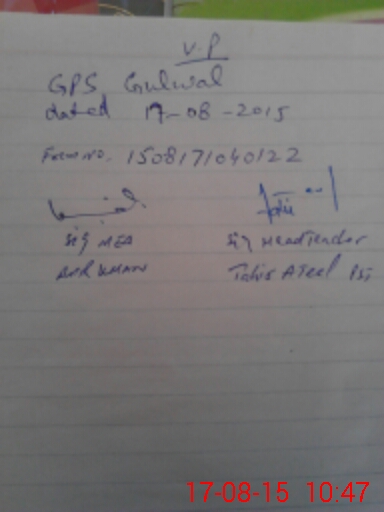 V.P
GPS Gulwal
dated 17-08-2015
Form No. 150817104 0122
Sig MEA Sig Headteacher
Tahir Ateel PST
17-08-15 10:47